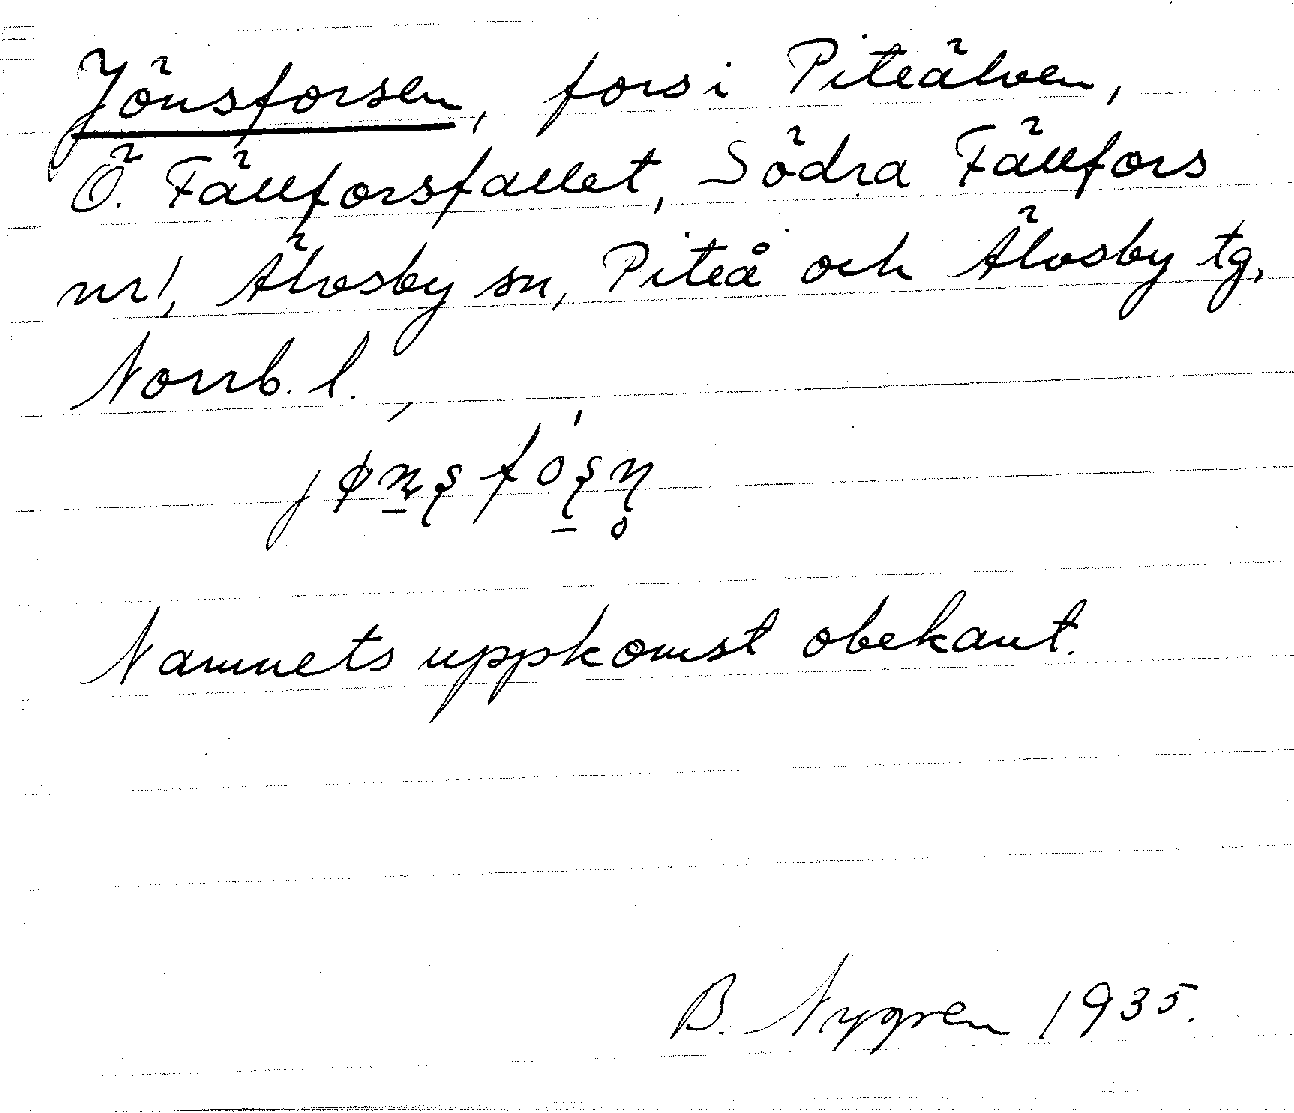 Jönsforsen, fors i Piteälven,
Ö. Fällforsfallet, Södra Fällfors
nr 1, Älvsby sn, Piteå och Älvsby tg,
Norrb. l.
Namnets uppkomst obekant.
B. Nygren 1935.